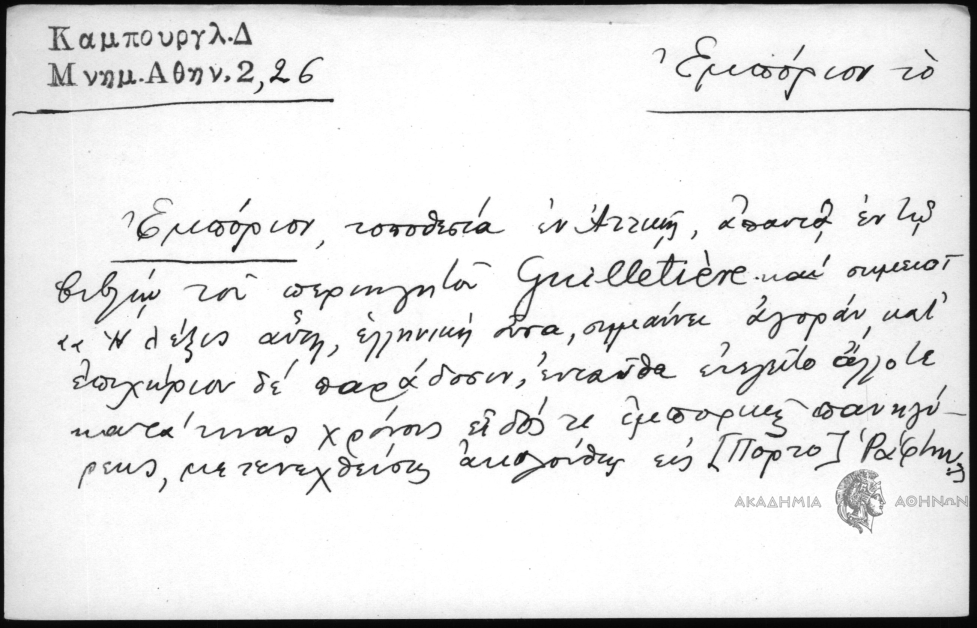 Καμπουργλ.Δ
Μνημ.Αθην.2,26
Ἐμπόριον τὸ
Ἐμπόριον, τοποθεσία ἐν Ἀττικῇ, ἀπαντᾷ ἐν τῷ
βιβλίῳ τοῦ περιηγητοῦ Guilletière καὶ σημειοῖ
«Ἡ λέξις αὕτη, ἑλληνικὴ οὖσα, σημαίνει ἀγοράν, κατ'
ἐπιχώριον δὲ παράδοσιν, ἐνταῦθα ἐτελεῖτο ἄλλοτε
κατά τινας χρόνους εἶδός τι ἐμπορικῆς πανηγύ-
ρεως, μετενεχθείσης ἀκολούθως εἰς [Πόρτο] Ῥάφτην»
ΑΚΑΔΗΜΙΑ ΑΘΗΝΩΝ